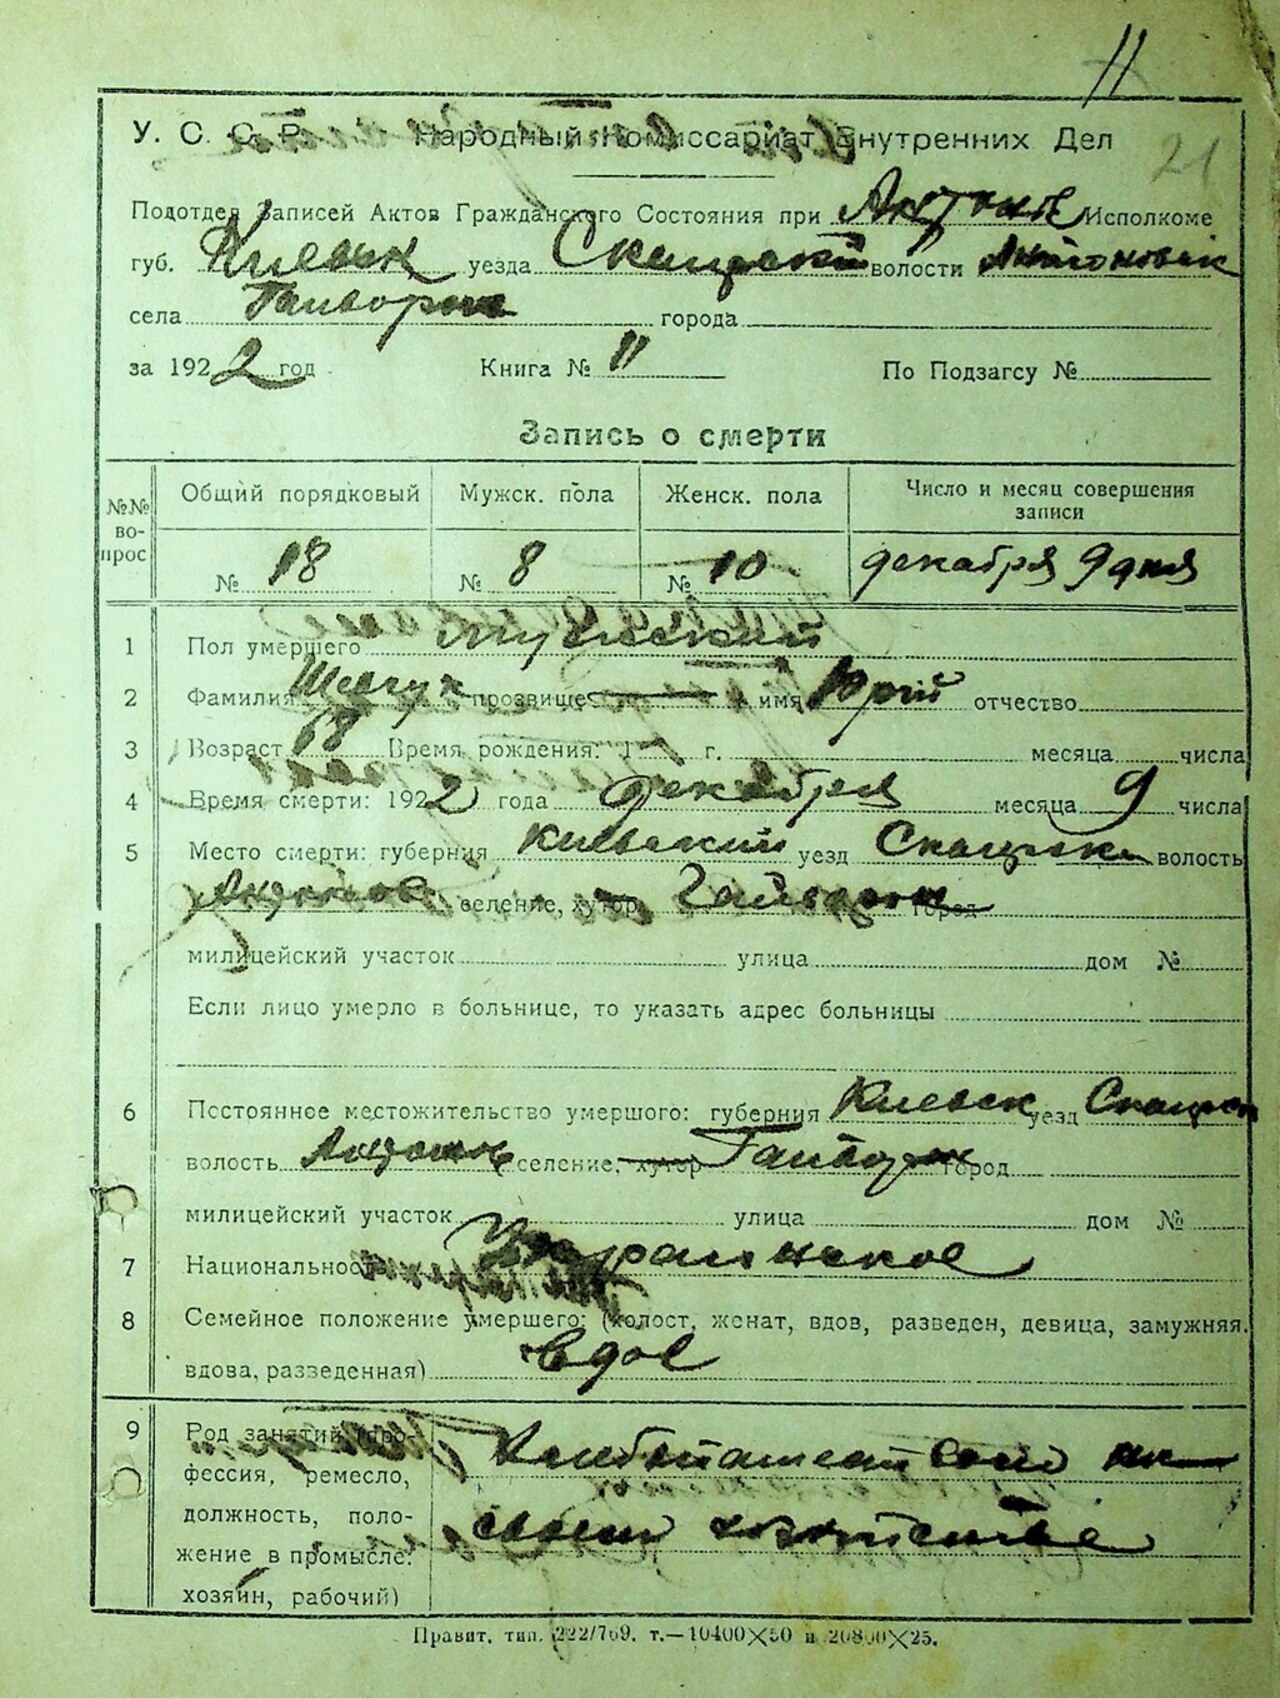 11
21
У. С. С. Р. Народный Комиссариат Внутренних Дел
Подотдел Записей Актов Гражданского Состояния при Антонов Исполкоме
губ. Киевск уезда Сквирский волости Антоновск
села Гайворон города
за 1922 год Книга № 11 По Подзагсу №
Запись о смерти
№№ во-прос Общий порядковый Мужск. пола Женск. пола Число и месяц совершения записи
№ 18 № 8 № 10 декабря 9 дня
1 Пол умершего мужеский
2 Фамилия Шевчук прозвище имя Юрий отчество
3 Возраст 68 Время рождения: 1 г. месяца числа
4 Время смерти: 1922 года декабря месяца 9 числа
5 Место смерти: губерния киевский уезд Сквирск волость
Антонов селение, хутор Гайворон город
милицейский участок улица дом №
Если лицо умерло в больнице, то указать адрес больницы
6 Постоянное местожительство умершого: губерния Киевск уезд Сквирск
волость Антонов селение, хутор Гайворон город
милицейский участок улица дом №
7 Национальность Украинское
8 Семейное положение умершего: (холост, женат, вдов, разведен, девица, замужняя,
вдова, разведенная) вдов
9 Род занятий (про-
фессия, ремесло,
должность, поло-
жение в промысле:
хозяин, рабочий)
Хлебопашеством
своем хозяйстве
Правит. тип. 222/769. т.—10400×50 и 20800×25.